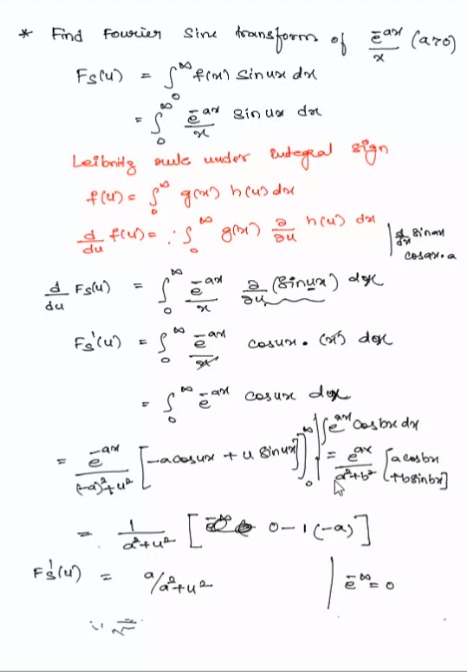 * Find Fourier Sine transform of e^-ax/x (a>0)
Fs(u) = ∫₀^∞ f(x) sin ux dx
= ∫₀^∞ e^-ax/x sin ux dx
Leibnitz rule under integral sign
f(u) = ∫₀^∞ g(x) h(u) dx
d/du f(u) = ∫₀^∞ g(x) ∂/∂u h(u) dx
d/dx sin ax
cos ax . a
d/du Fs(u) = ∫₀^∞ e^-ax/x ∂/∂u (sin ux) dx
Fs'(u) = ∫₀^∞ e^-ax/x cos ux . (x) dx
= ∫₀^∞ e^-ax cos ux dx
= e^-ax/((-a)²+u²) [-a cos ux + u sin ux]₀^∞
∫e^ax cos bx dx
= e^ax/(a²+b²) [a cos bx
+ b sin bx]
= 1/(a²+u²) [ 0 - 1 (-a) ]
Fs'(u) = a/a²+u²
e^-∞ = 0